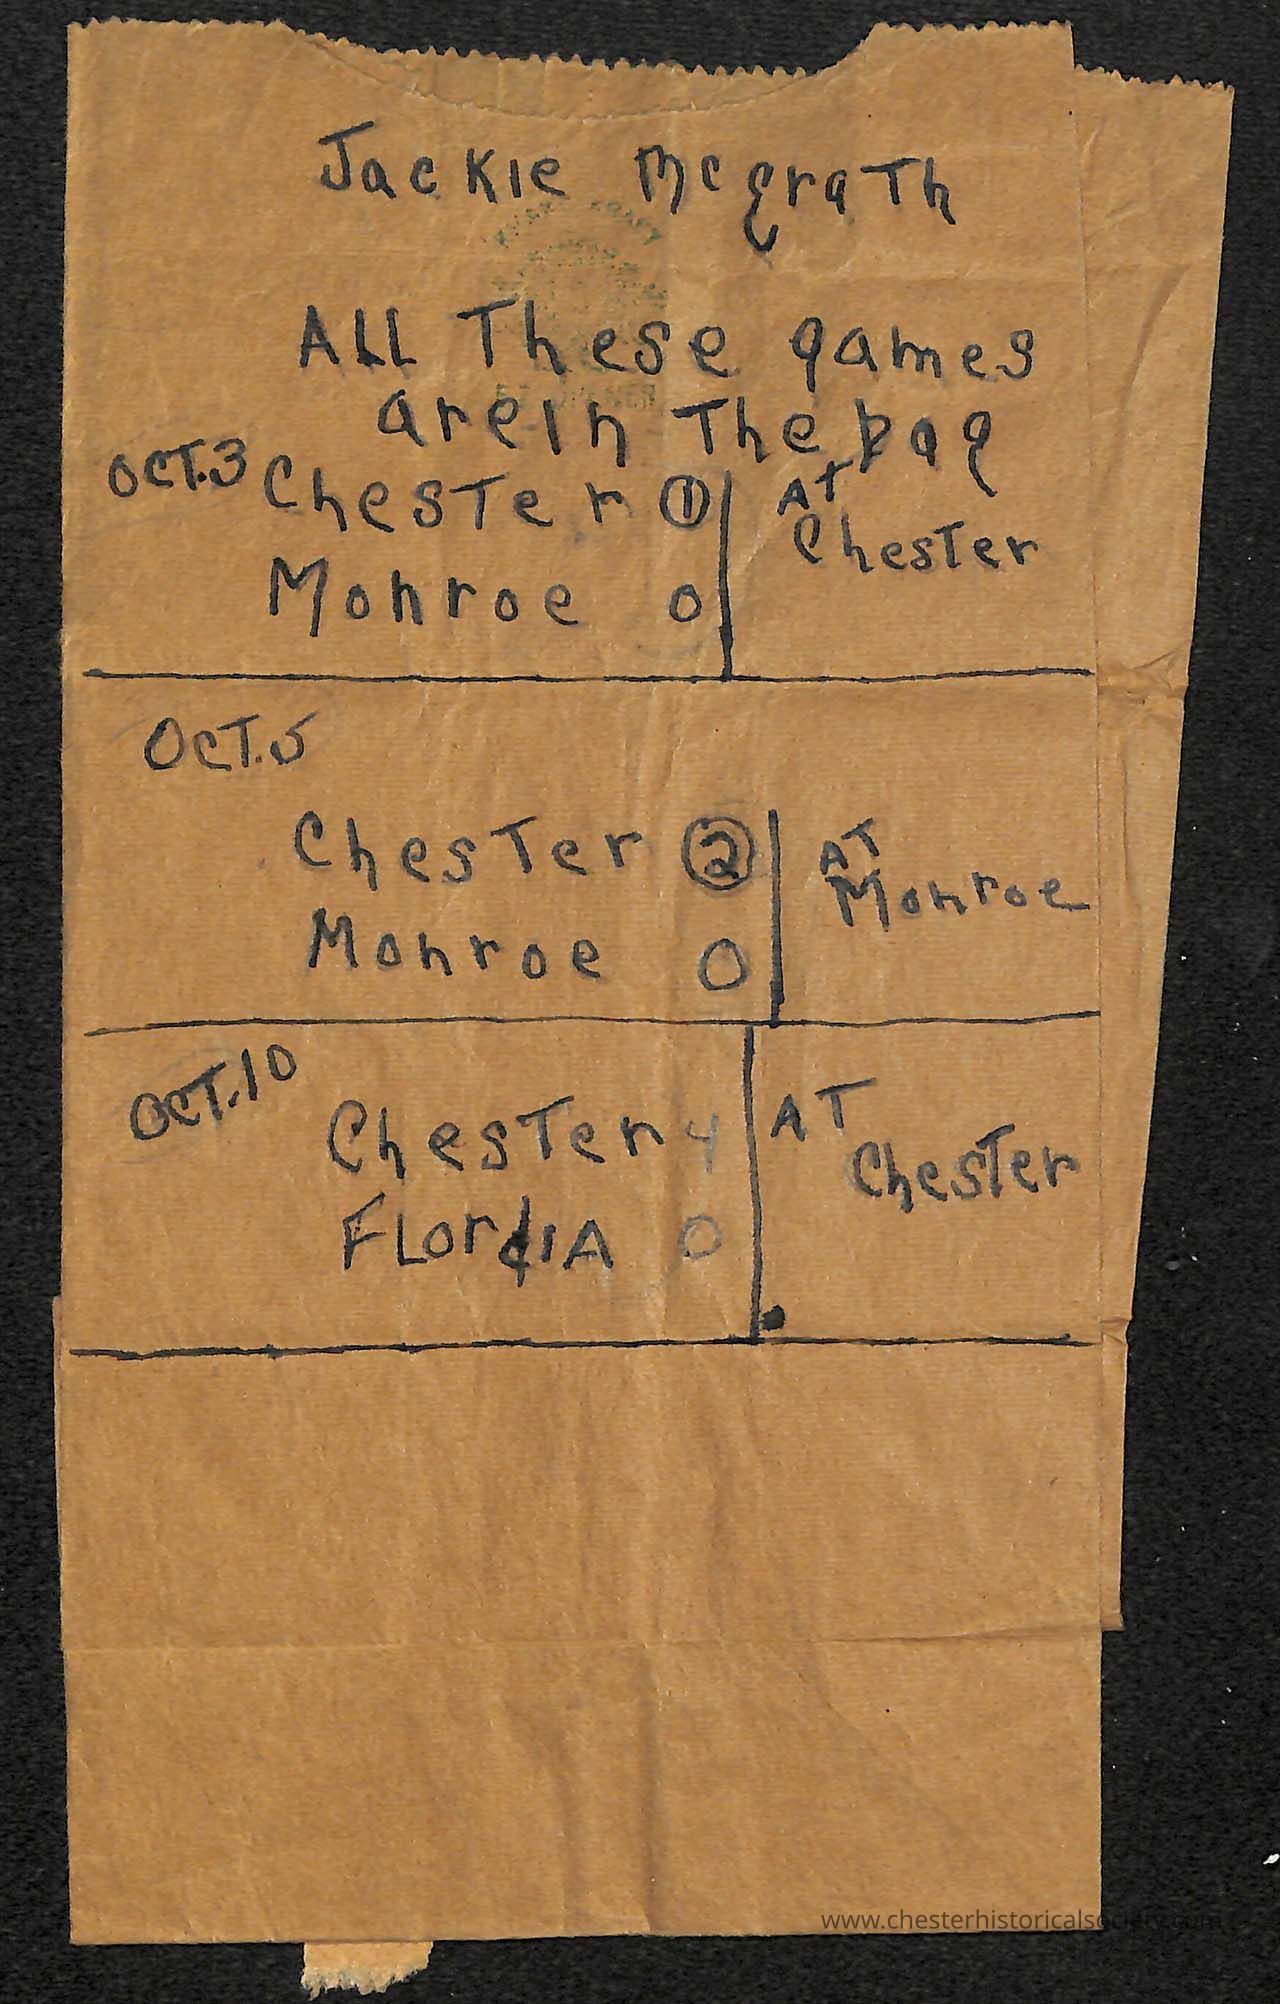 Jackie McgraTh
ALL These games
areIn The bag
OCT.3 ChesTer 1 AT Chester
Monroe 0
OCT.5
ChesTer 2 AT Monroe
Monroe 0
OCT.10
ChesTer 4 AT Chester
FLordiA 0
www.chesterhistoricalsociety.com